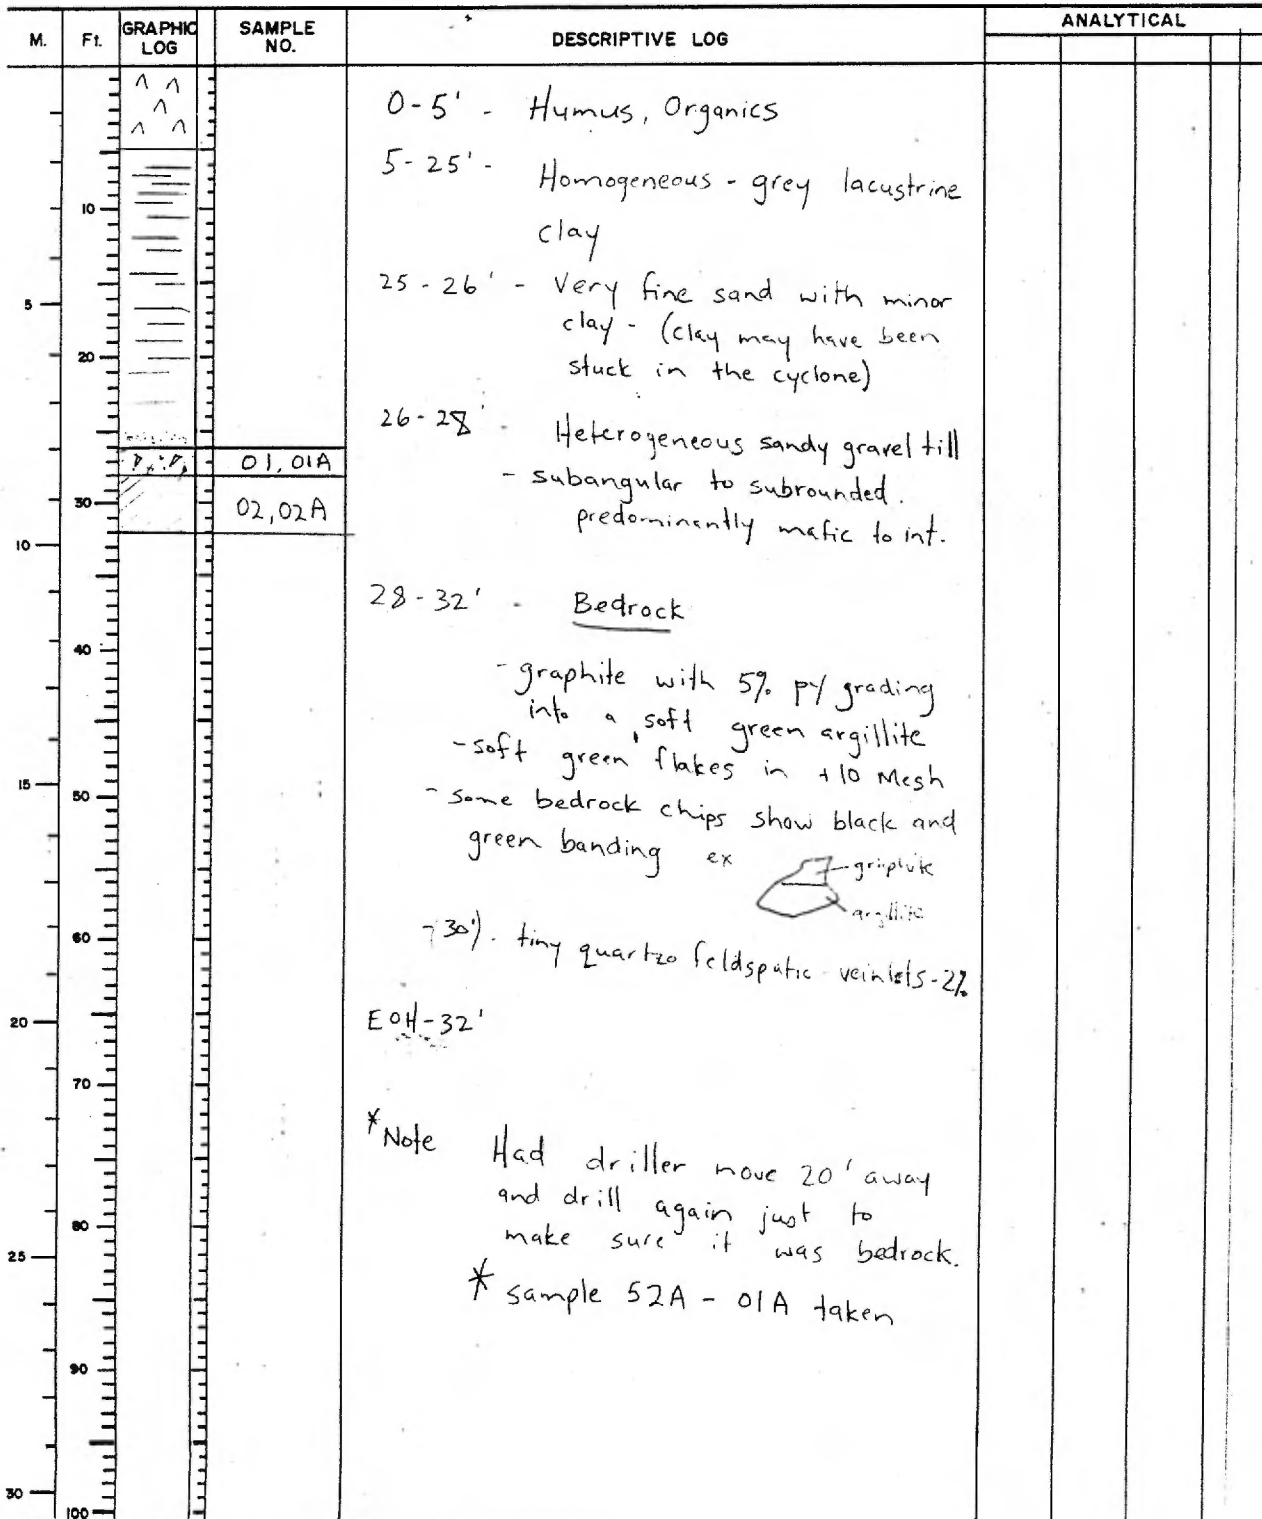 M. Ft. GRAPHIC LOG SAMPLE NO. DESCRIPTIVE LOG ANALYTICAL
0-5' - Humus, Organics
5-25' - Homogeneous - grey lacustrine
clay
25-26' - Very fine sand with minor
clay - (clay may have been
stuck in the cyclone)
26-28' - Heterogeneous sandy gravel till
- subangular to subrounded.
predominantly mafic to int.
28-32' - Bedrock
- graphite with 5% py grading
into a soft green argillite
- soft green flakes in +10 Mesh
- some bedrock chips show black and
green banding ex
graphite
argillite
30') - tiny quartzo feldspatic veinlets - 2%
EOH-32'
*Note Had driller move 20' away
and drill again just to
make sure it was bedrock.
* sample 52A - 01A taken
01, 01A
02, 02A
5
10
15
20
25
30
10
20
30
40
50
60
70
80
90
100